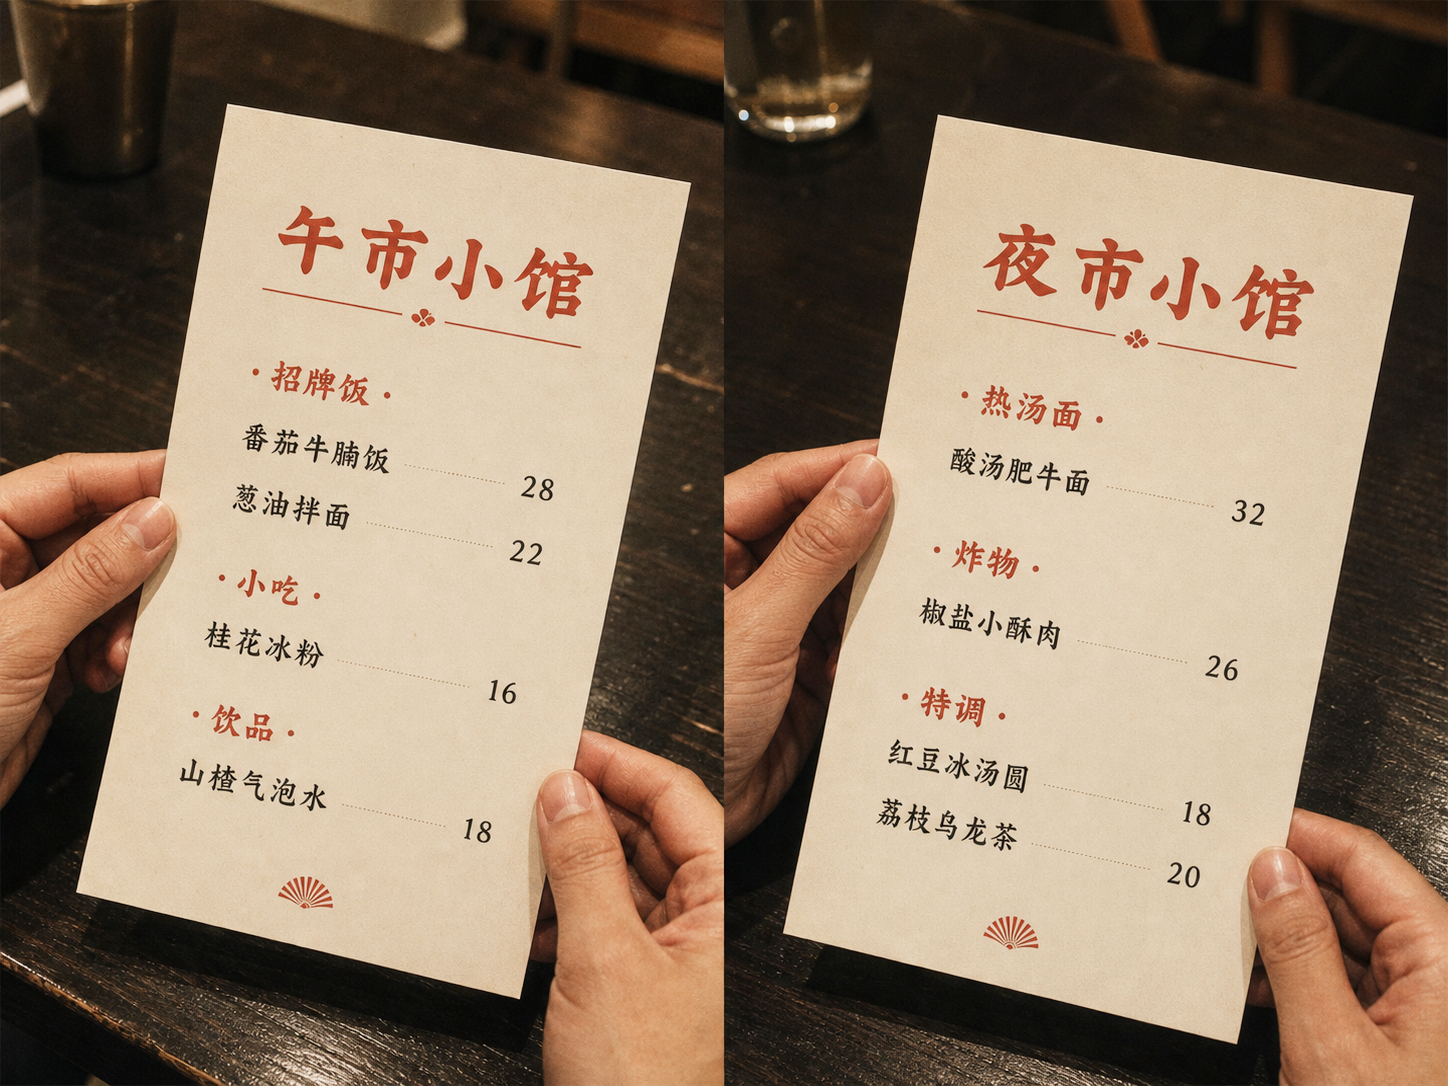 午市小馆
·招牌饭·
番茄牛腩饭 28
葱油拌面 22
·小吃·
桂花冰粉 16
·饮品·
山楂气泡水 18
夜市小馆
·热汤面·
酸汤肥牛面 32
·炸物·
椒盐小酥肉 26
·特调·
红豆冰汤圆 18
荔枝乌龙茶 20